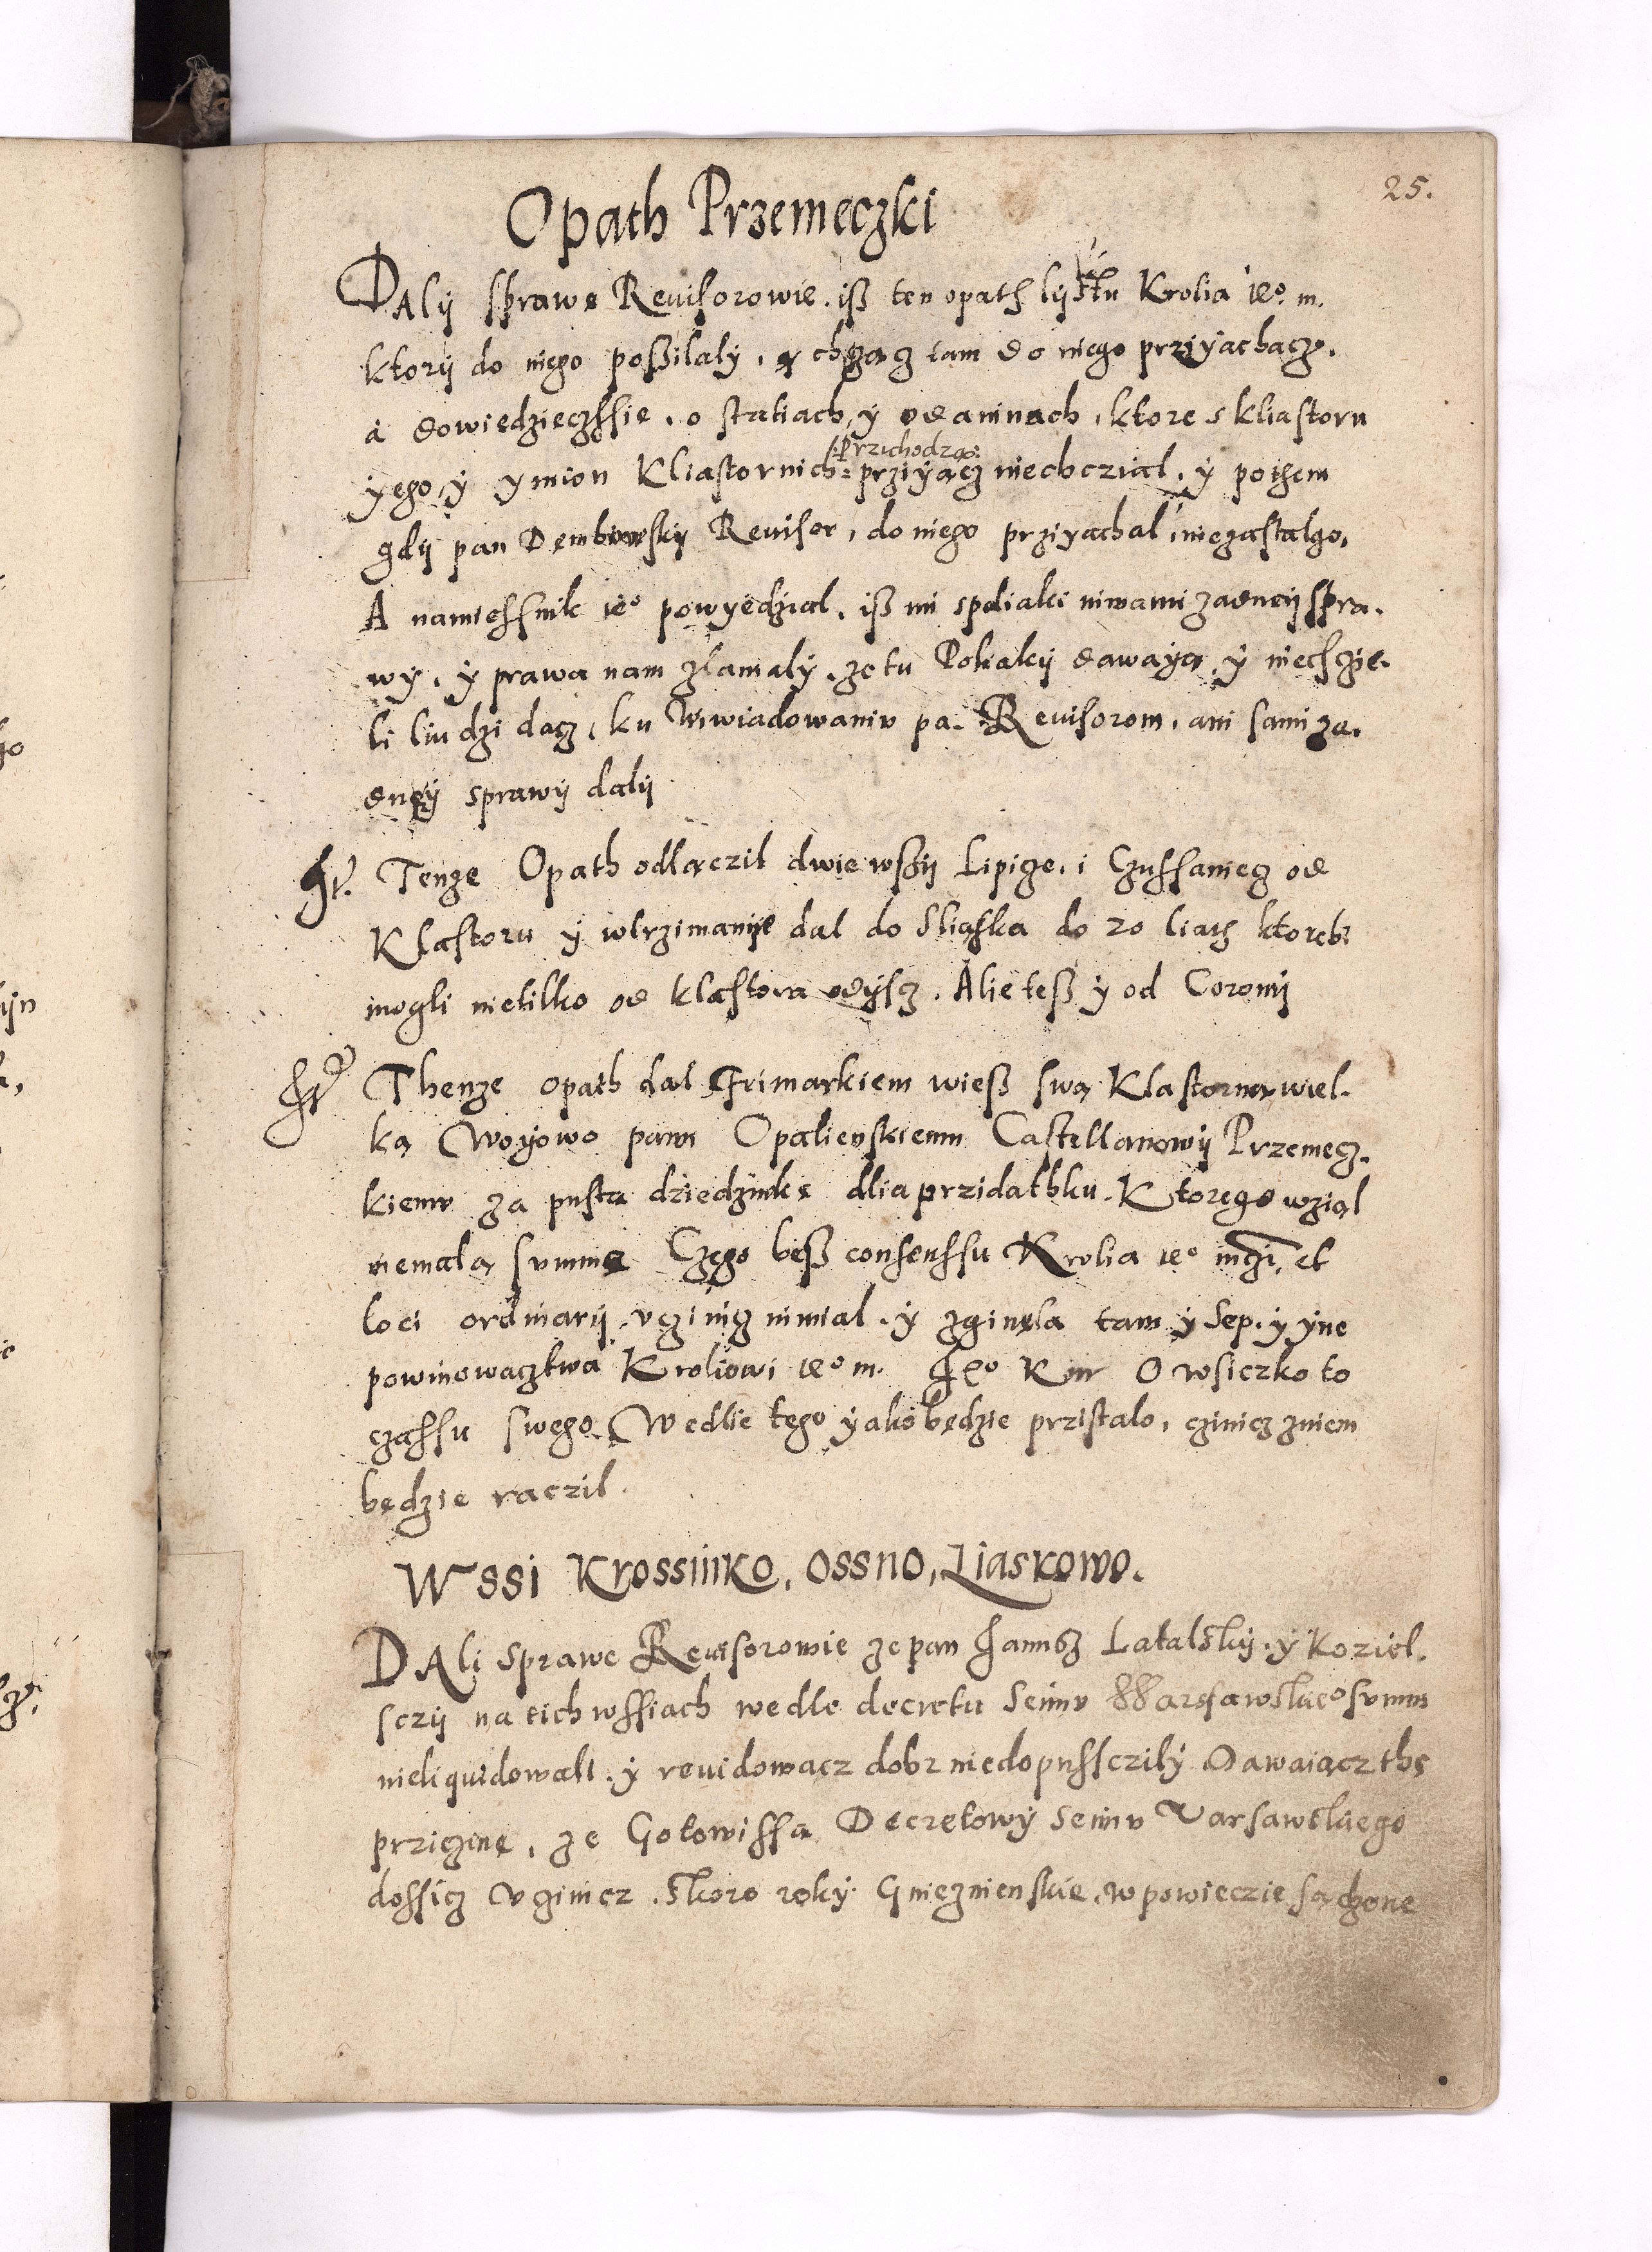 25.
Opath Przemeczki
DAlij sprawę Reuisorowie. iß ten opath lijstu Krolia ie⁰. m.
ktorij do niego poßilalÿ, chczącz iam do niego przÿiachacz.
a dowiedzieczssie. o statiach, ÿ odaninach, ktore s kliastoru
ÿego, ÿ ymion Kliastornich :Przichodzą: przÿiącz niechcział. ÿ pothem
gdij pan Dembowskij Reuisor, do niego prziyachał, niezastalgo,
A namiessnik ie⁰ powyedział. iß mi spoliaki niwami zadneij spra.
wÿ. ÿ prawa nam złamalÿ. ze tu Poliakij dawaÿą, ÿ niechczie.
li liudzi dacz, ku Wiwiadowaniv pa. Reuisorom, ani sami za.
dneÿ sprawij dalij
Tenze Opath odlączil dwie wssij Lipicze, i Czussaniecz od
Klastoru ÿ wtrzimanije dal do Sliaska do 20 liath ktorebi
mogli nietilko od klastora odÿscz. Alie teß ÿ od Coronij
Thenze opath dal Frimarkiem wieß swą Klastorną wiel.
ką Woÿowo panu Opalienskiemu Castellanowij Przemecz.
kiemv za pustą dziedzinkę dlia przidathku. Ktorego wziąl
niemałą summę Czego beß consenssu Krolia ie⁰ mczi, et
loci ordinarij vczinicz nimial. ÿ zginęla tam ÿ Sep. ÿ ÿne
powinowacztwa Kroliowi ie⁰ m. Je⁰ Km O wsiczko to
czassu swego Wedlie tego ÿako będzie przistalo, czinicz zniem
będzie raczil.
Wssi Krossinko, Ossno, Liaskowo.
DAli sprawe Reuisorowie ze pan Janusz Latalskÿ. ÿ Koziel.
sczij na tich wssiach wedle decretu Seimv Warssawskie⁰ summ
nieliquidowali. ÿ reuidowacz dobr niedopussczilÿ Dawaiącz thę
priczinę, ze Gotowi ssą Decretowÿ Seimv Varsawskiego
dossicz vczinicz. Skoro rokÿ Gnieznienskie, wpowieczie sądzone